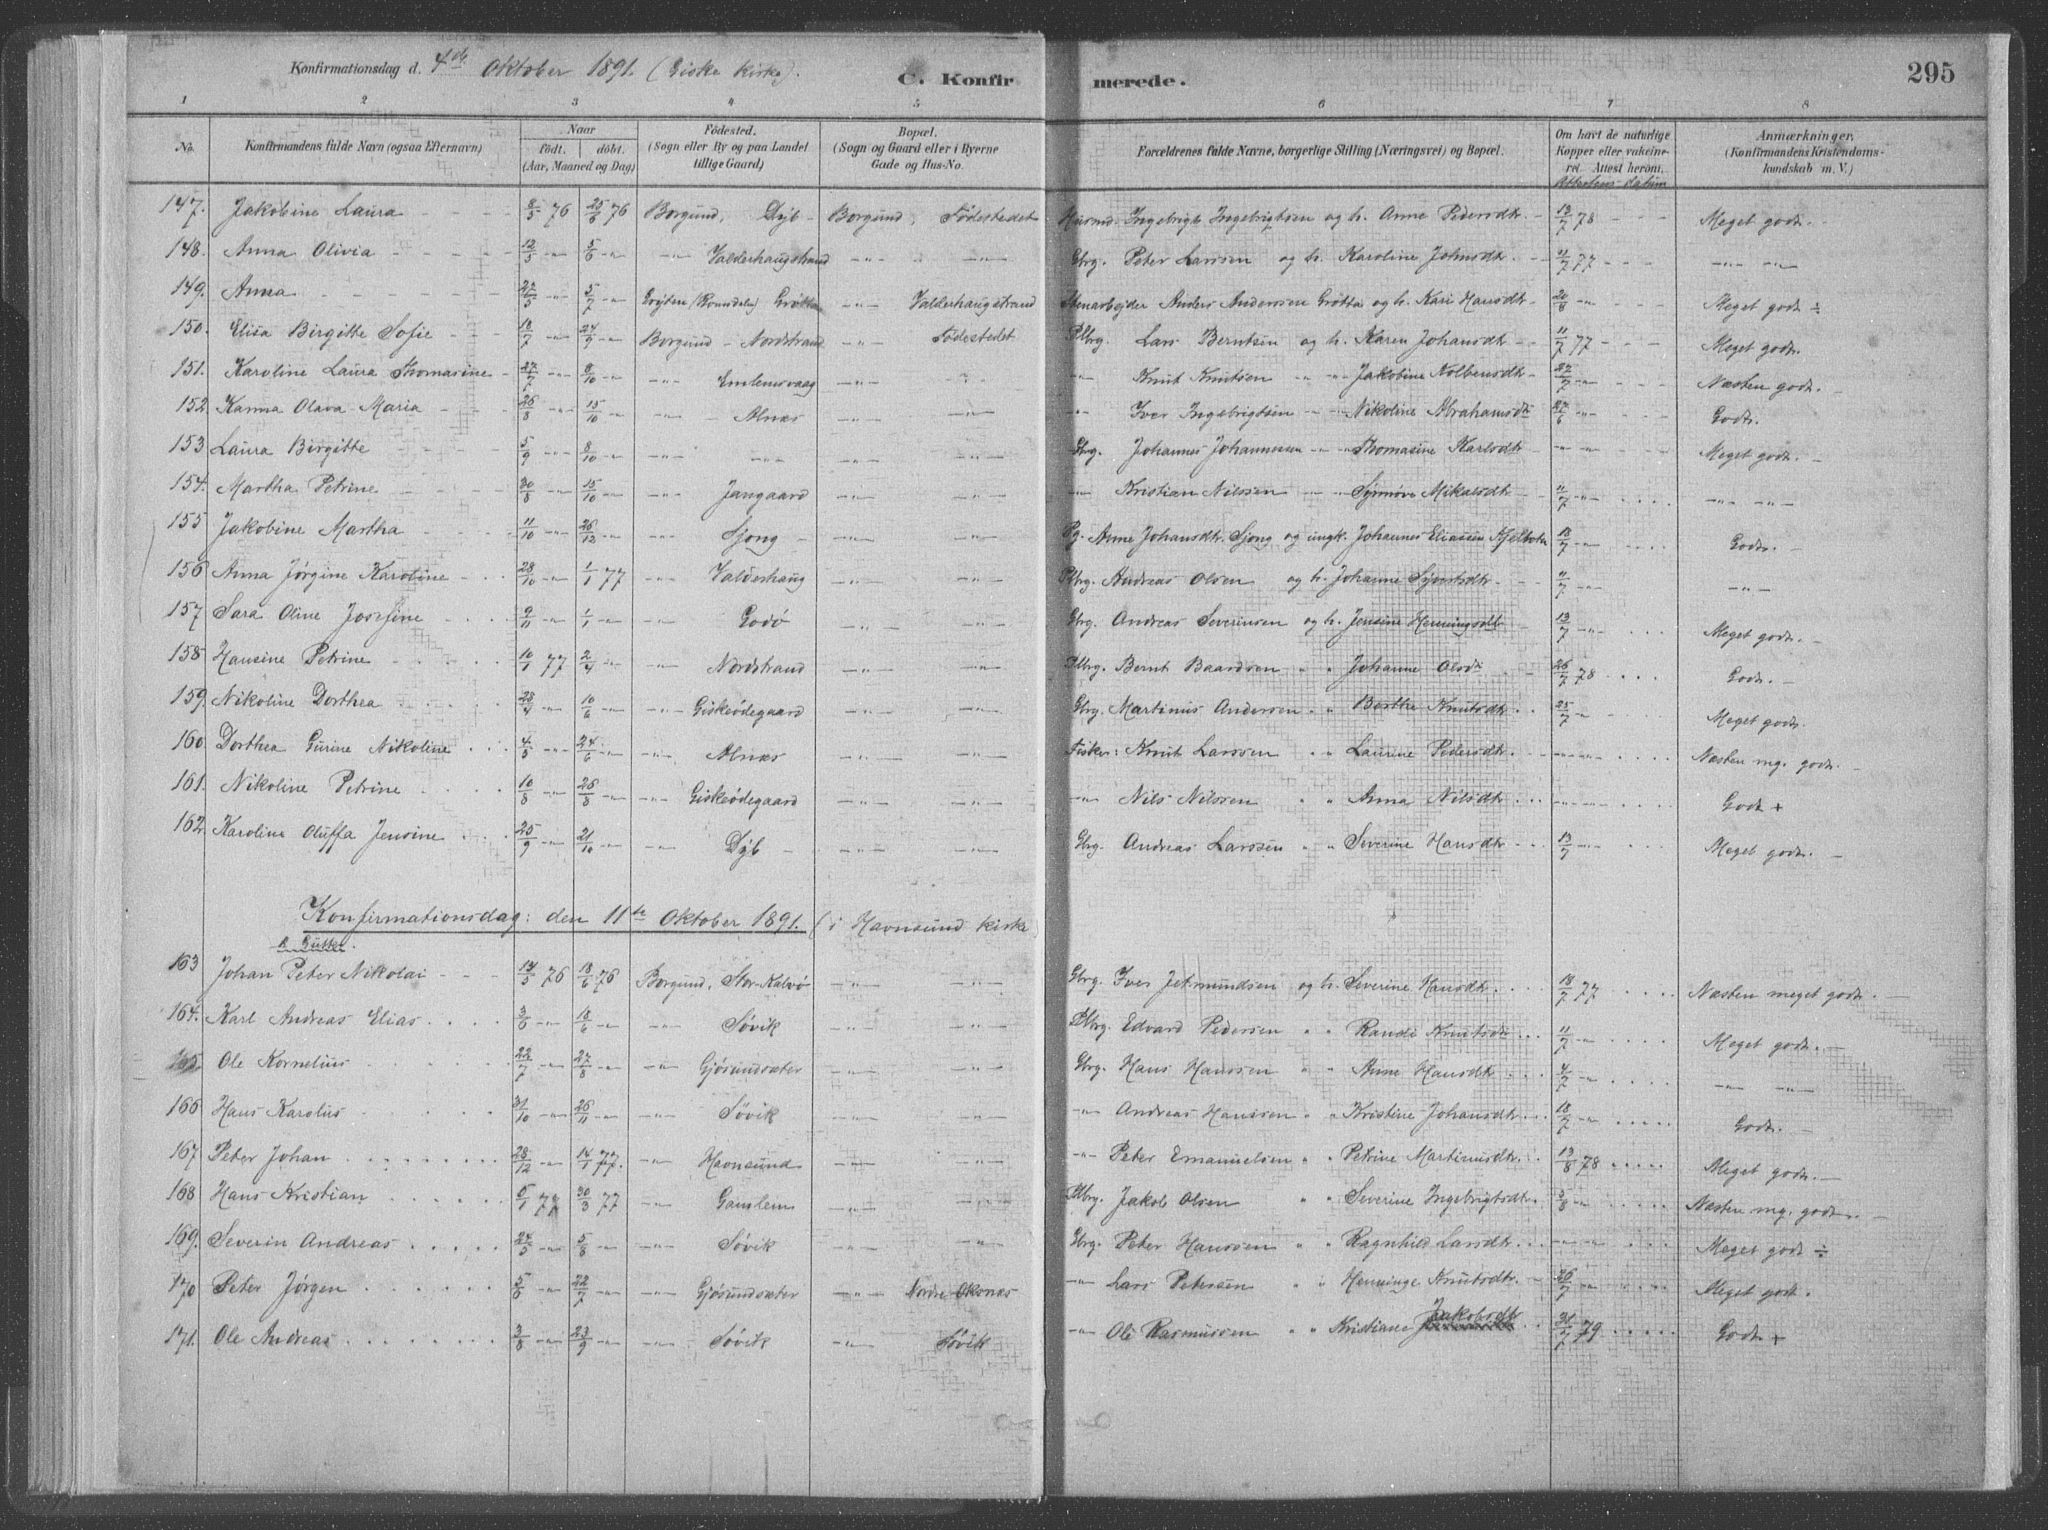 Konfirmationsdag d. 4de Oktober 1891. (Giske kirke).
C. Konfirmerede.
295
1 2 3 4 5 6 7 8
No. Konfirmandens fulde Navn (ogsaa Efternavn) Naar født. døbt. (Aar, Maaned og Dag) Fødested. (Sogn eller By og paa Landet tillige Gaard) Bopæl. (Sogn og Gaard eller i Byerne Gade og Hus-No. Forældrenes fulde Navne, borgerlige Stilling (Næringsvei) og Bopæl. Om havt de naturlige Kopper eller vakcineret. Attest herom. Attestens datum Anmærkninger. (Konfirmandens Kristendomskundskab m. V.)
147. Jakobine Laura 8/5 76 25/6 76 Borgund, Dyb Borgund, Fødestedet Husmd. Ingebrigt Ingebrigtsen og h. Anne Pedersdtr 13/7 78 Meget godt.
148. Anna Olivia 12/5 -"- 5/6 -"- -"- Valderhaugstrand -"- -"- Gbrg. Peter Larssen og h. Karoline Johnsdtr. 11/7 77 -"- -"-
149. Anna 27/5 -"- 5/7 -"- Gryten (Romsdalen) -"- Valderhaugstrand Stenarbejder Anders Anderssen Grøtta og h. Kari Hansdtr 20/8 -"- Meget godt ÷
150. Elisa Birgitte Sofie 18/7 -"- 24/9 -"- Borgund - Nordstrand -"- Fødestedet Plbrg. Lars Berntsen og h. Karen Johansdtr 11/7 77 Meget godt.
151. Karoline Laura Thomasine 27/7 -"- 8/10 -"- -"- Emlemsvaag -"- -"- -"- Knut Knutsen -"- -"- Jakobine Kolbensdtr 27/7 -"- Næsten godt.
152. Kanna Olava Maria 26/8 -"- 15/10 -"- -"- Alnæs -"- -"- -"- Iver Ingebrigtsen -"- -"- Nikoline Abrahamsdtr 27/6 -"- Godt.
153 Laura Birgitte 5/9 -"- 8/10 -"- -"- -"- -"- -"- Gbrg. Johannes Johannessen -"- -"- Thomasine Karlsdtr -"- -"- Meget godt.
154. Martha Petrine 30/8 -"- 15/10 -"- -"- Jangaard -"- -"- -"- Kristian Nilssen -"- -"- Synnøve Mikalsdtr 11/7 -"- -"- -"-
155 Jakobine Martha 11/10 -"- 26/12 -"- -"- Sjong -"- -"- Pg. Anne Johansdtr. Sjong og ungk. Johannes Eliassen 18/7 -"- Godt.
156 Anna Jørgine Karoline 28/10 -"- 1/1 77 -"- Valderhaug -"- -"- Plbrg. Andreas Olsen og h. Johanne Syvertsdtr 11/7 -"- -"-
157 Sara Oline Josefine 9/11 -"- 1/1 -"- -"- Godø -"- -"- Gbrg. Andreas Severinsen og h. Jensine Henningsdtr 13/7 -"- Meget godt.
158 Hansine Petrine 10/1 77 2/4 -"- -"- Nordstrand -"- -"- Plbrg. Bernt Baardsen " " Johanne Olsdtr 26/7 78 Godt.
159. Nikoline Dorthea 28/4 -"- 10/6 -"- -"- Giskeødegaard -"- -"- Gbrg. Martinus Andersen " " Berthe Knutsdtr 25/7 -"- Meget godt.
160. Dorthea Gurine Nikoline 4/5 -"- 24/6 -"- -"- Alnæs -"- -"- Fisker: Knut Larssen " " Laurine Pedersdtr -"- -"- Næsten mg. godt.
161. Nikoline Petrine 10/8 -"- 26/8 -"- -"- Giskeødegaard -"- -"- -"- Nils Nilssen " " Anna Nilsdtr -"- -"- Godt +
162. Karoline Oluffa Jensine 25/9 -"- 21/10 -"- -"- Dyb -"- -"- Gbrg. Andreas Larssen " " Severine Hansdtr 13/7 -"- Meget godt.
Konfirmationsdag: den 11te Oktober 1891. (i Havnsund kirke)
163 Johan Peter Nikolai 14/5 76 18/6 76 Borgund, Stor-Kalvø -"- -"- Gbrg. Iver Jetmundsen og h. Severine Hansdtr. 18/7 77 Næsten meget godt.
164. Karl Andreas Elias 3/6 -"- 18/6 -"- -"- Søvik -"- -"- Plbrg. Edvard Pedersen " " Randi Knutsdtr 11/7 -"- Meget godt.
165. Ole Kornelius 22/7 -"- 27/8 -"- -"- Gjøsundsæter -"- -"- Gbrg. Hans Hanssen " " Anne Hansdtr 4/7 -"- -"- -"-
166 Hans Karolus 31/10 -"- 26/11 -"- -"- Søvik -"- -"- -"- Andreas Hanssen " " Kristine Johansdtr 18/7 -"- Godt.
167 Peter Johan 28/12 -"- 14/1 77. -"- Havnsund -"- -"- -"- Peter Emanuelsen " " Petrine Martinusdtr. 13/8 78 Meget godt.
168 Hans Kristian 5/1 77 30/3 77 -"- Gamlem -"- -"- Plbrg. Jakob Olsen " " Severine Ingebrigtsdtr. 3/8 -"- Næsten mg. godt.
169. Severin Andreas 24/5 -"- 5/8 -"- -"- Søvik -"- -"- Gbrg. Peter Hanssen " " Ragnhild Larsdtr -"- -"- Meget godt ÷
170 Peter Jørgen 5/6 -"- 22/7 -"- -"- Gjøsundsæter -"- Nordre Oksnæs -"- Lars Petersen " " Henninge Knutsdtr. 26/7 -"- Meget godt.
171. Ole Andreas 3/8 -"- 23/9 -"- -"- Søvik -"- Søvik -"- Ole Rasmussen " " Kristiane Jakobsdtr 31/7 79 Godt +